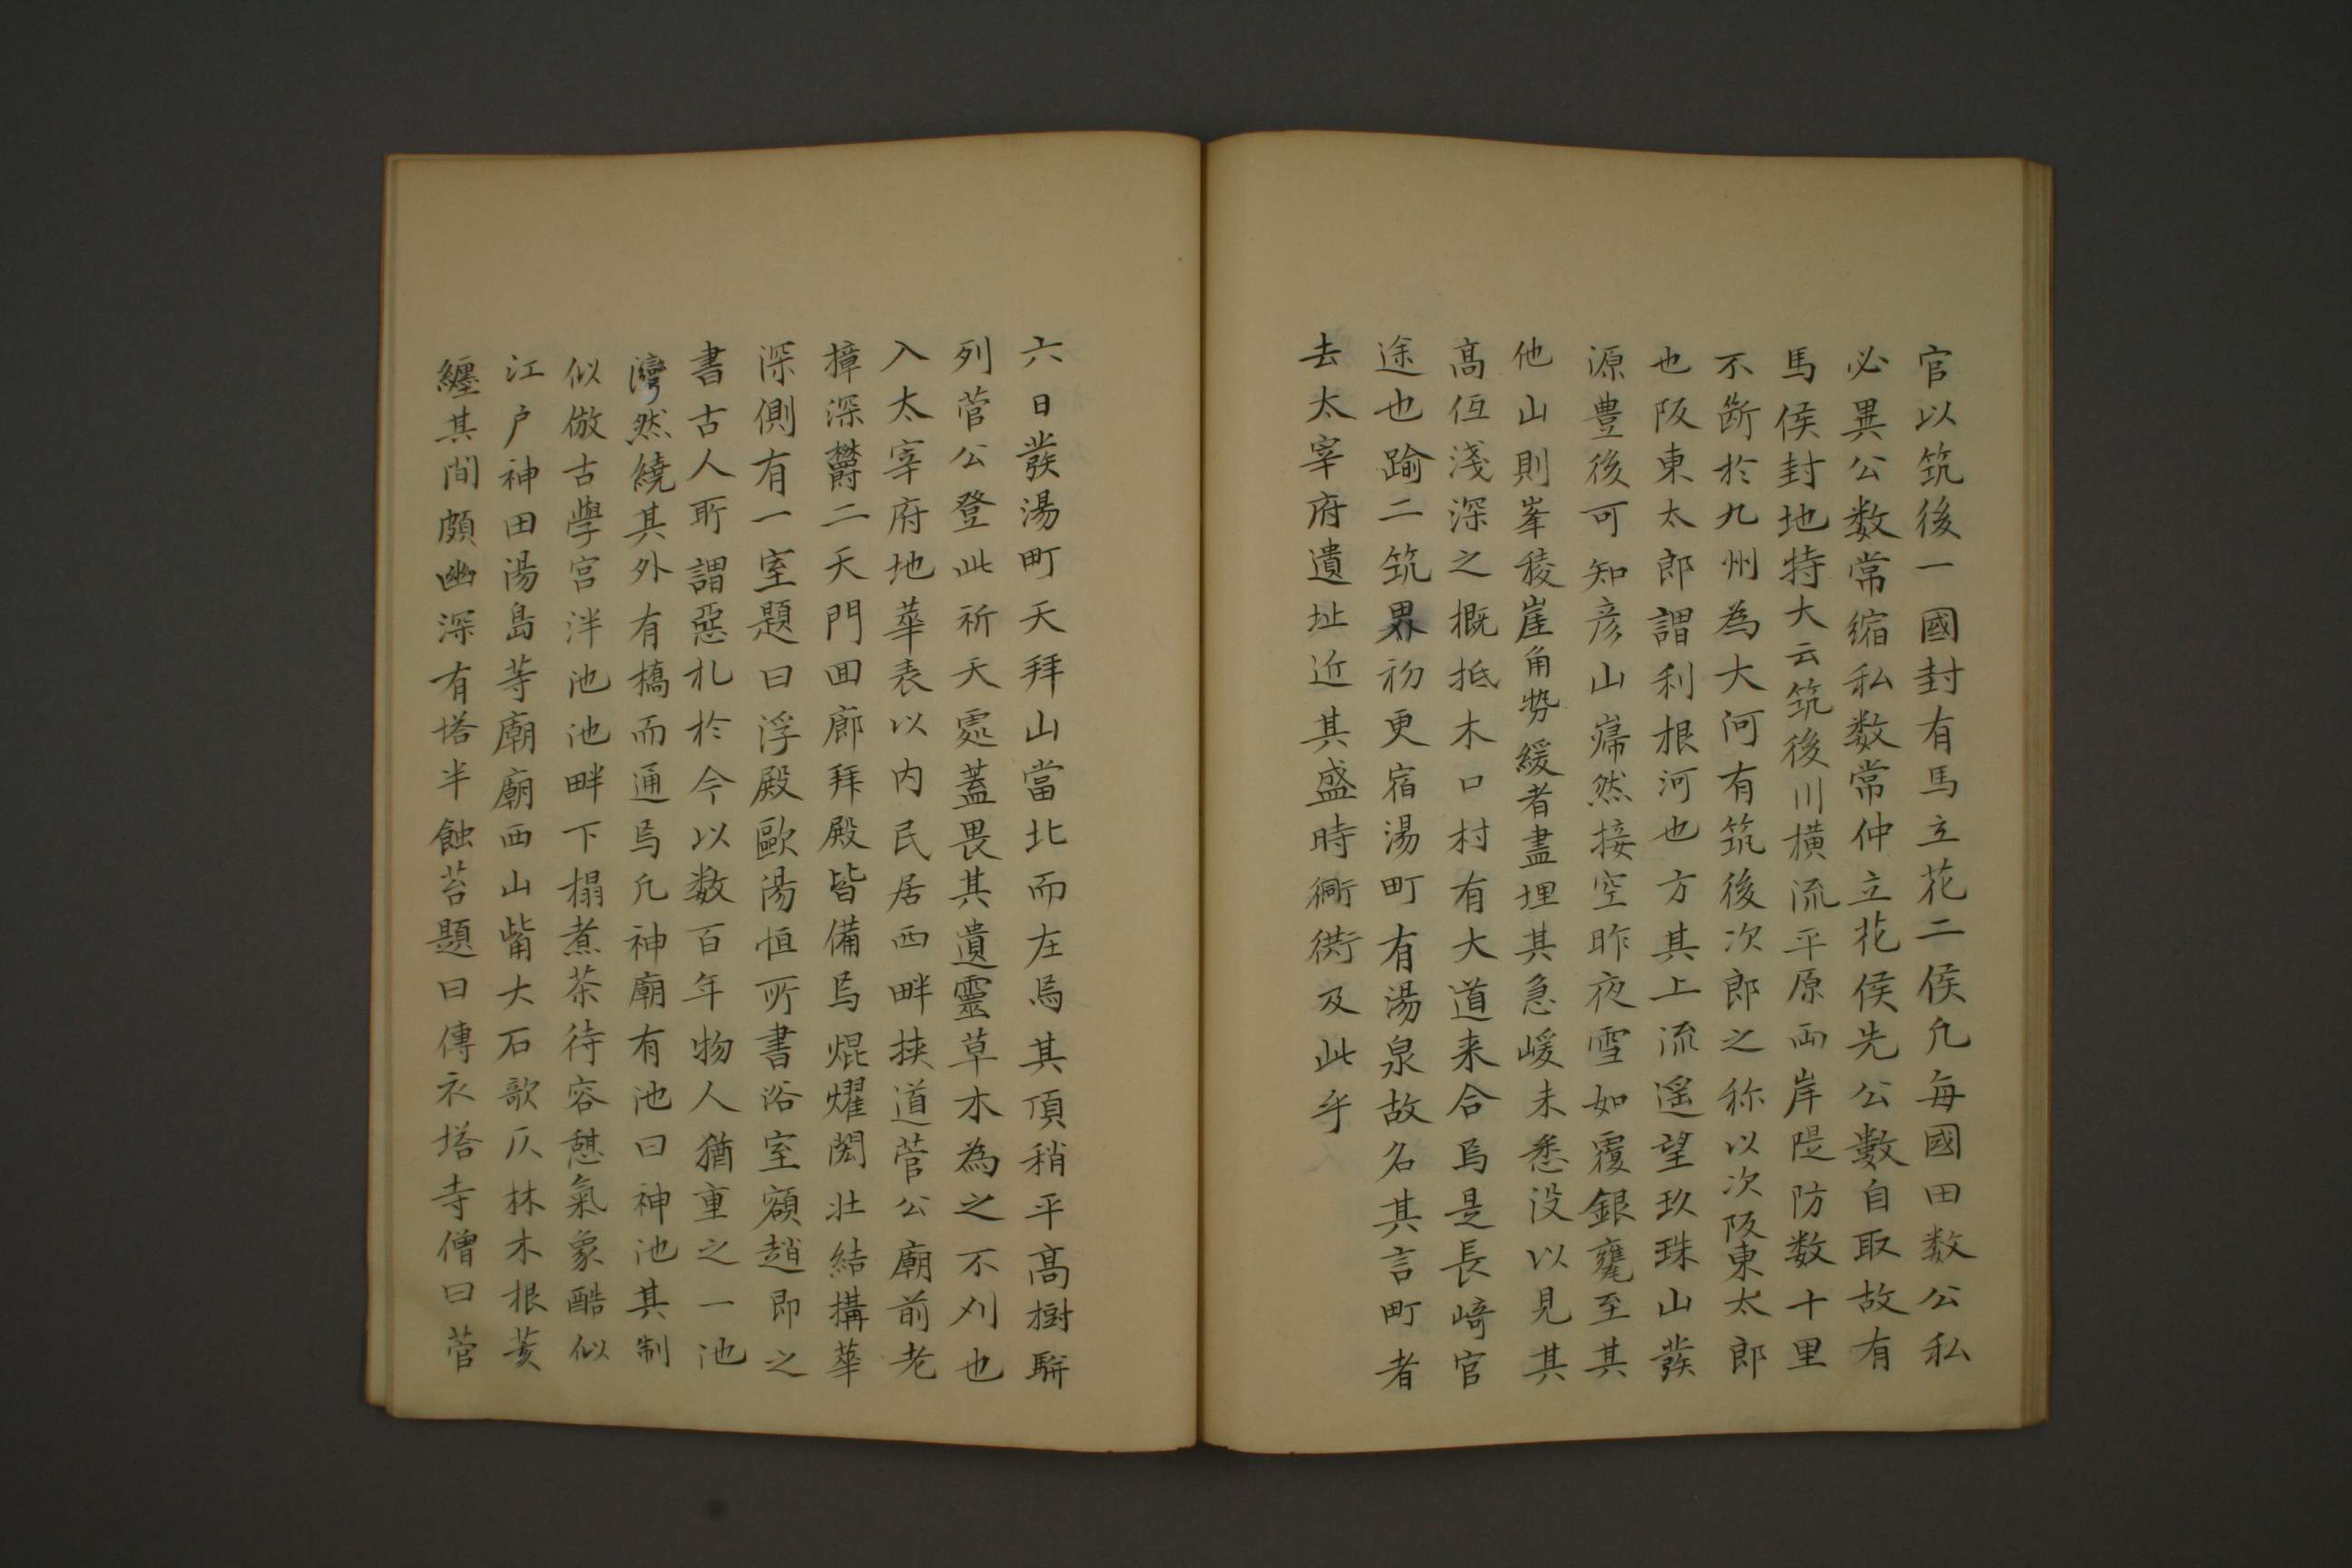 官以筑後一國封有馬立花二侯凢每國田数公私
必異公数常縮私数常伸立花侯先公數自取故有
馬侯封地特大云筑後川横流平原両岸隄防数十里
不斷於九州為大河有筑後次郎之称以次阪東太郎
也阪東太郎謂利根河也方其上流遥望玖珠山發
源豊後可知彦山巋然接空昨夜雪如覆銀甕至其
他山則峯稜崖角勢緩者盡埋其急峻未悉没以見其
髙低淺深之概抵木口村有大道来合焉是長﨑官
途也踰二筑界初更宿湯町有湯泉故名其言町者
去太宰府遺址近其盛時衙衖及此乎
六日發湯町天拜山當北而左焉其頂稍平髙樹駢
列菅公登此祈天處蓋畏其遺靈草木為之不刈也
入太宰府地華表以内民居西畔挟道菅公廟前老
樟深欝二天門回廊拜殿皆備焉焜燿閎壮結搆華
深側有一室題曰浮殿歐湯恒所書浴室額趙即之
書古人所謂惡札於今以数百年物人猶重之一池
灣然繞其外有橋而通焉凢神廟有池曰神池其制
似倣古學宫泮池池畔下榻煮茶待容憇氣象酷似
江户神田湯島等廟廟西山觜大石歌仄林木根荄
纏其間頗幽深有塔半蝕苔題曰傳衣塔寺僧曰菅